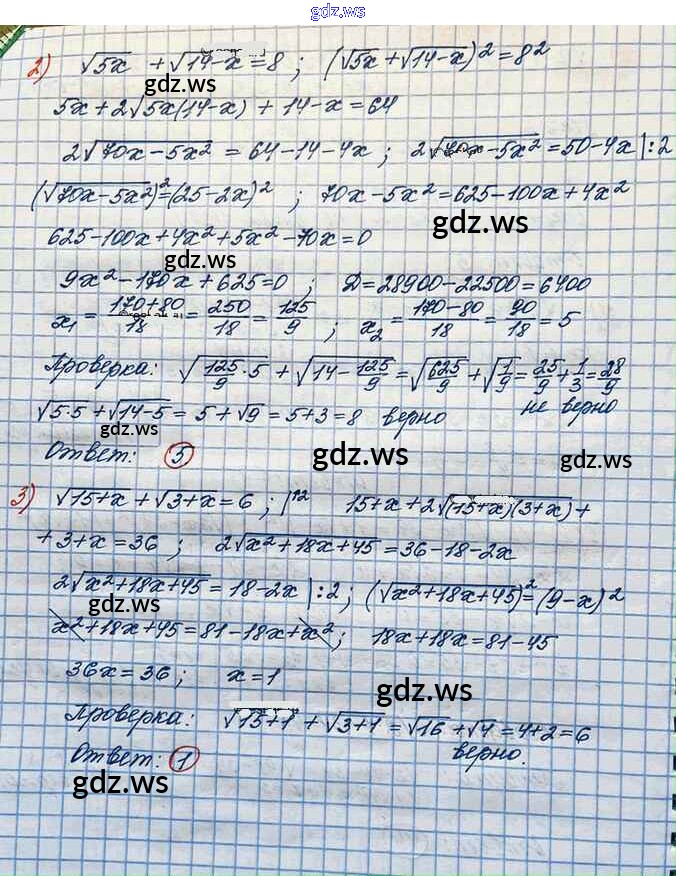 gdz.ws
2) √5x + √14-x = 8 ; (√5x + √14-x)² = 8²
gdz.ws
5x + 2√5x(14-x) + 14-x = 64
2√70x-5x² = 64-14-4x ; 2√70x-5x² = 50-4x |:2
(√70x-5x²)² = (25-2x)² ; 70x-5x² = 625-100x+4x²
gdz.ws
625-100x+4x²+5x²-70x=0
gdz.ws
9x²-170x+625=0 ; D=28900-22500=6400
x₁ = (170+80)/18 = 250/18 = 125/9 ; x₂ = (170-80)/18 = 90/18 = 5
gdz.ws
Проверка: √125/9·5 + √14-125/9 = √625/9 + √1/9 = 25/9 + 1/3 = 28/9
не верно
√5·5 + √14-5 = 5+√9 = 5+3 = 8 верно
gdz.ws
Ответ: 5
gdz.ws
gdz.ws
3) √15+x + √3+x = 6 ; |² 15+x+2√(15+x)(3+x) +
+3+x=36 ; 2√x²+18x+45 = 36-18-2x
2√x²+18x+45 = 18-2x |:2 ; (√x²+18x+45)² = (9-x)²
gdz.ws
x²+18x+45=81-18x+x² ; 18x+18x=81-45
36x=36 ; x=1
gdz.ws
Проверка: √15+1 + √3+1 = √16 + √4 = 4+2 = 6
верно.
Ответ: 1
gdz.ws